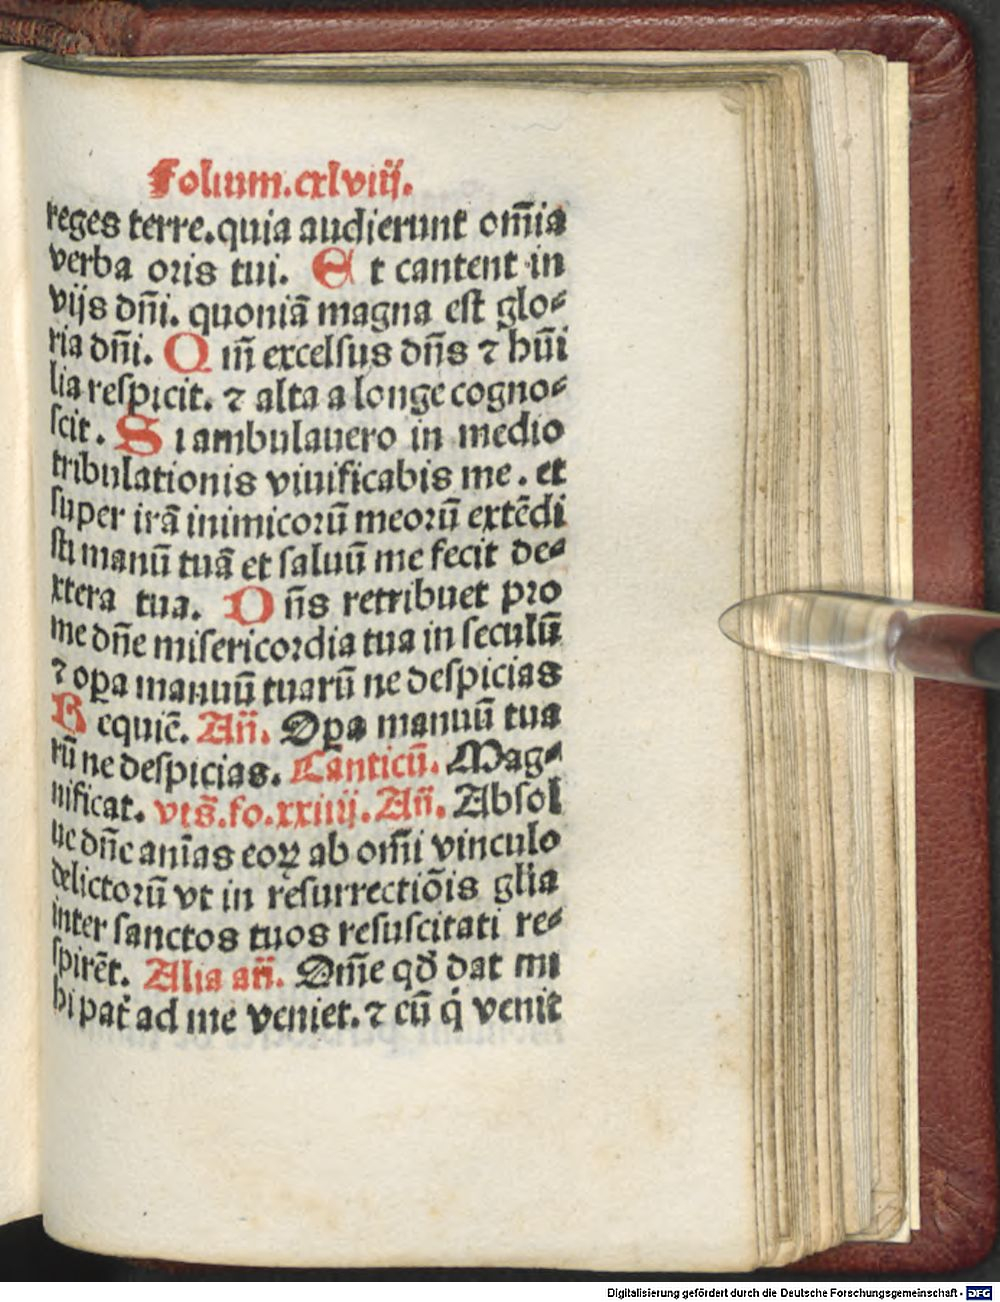 Folium.cxlviij.
reges terre.quia audierunt om̄ia
verba oris tui. Et cantent in
vijs dn̄i. quoniā magna est glo⸗
ria dn̄i. Qm̄ excelsus dn̄s ⁊ hūi
lia respicit. ⁊ alta a longe cogno⸗
scit. Si ambulauero in medio
tribulationis viuificabis me. et
super irā inimicorū meorū extēdi
sti manū tuā et saluū me fecit de⸗
xtera tua. Dn̄s retribuet pro
me dn̄e misericordia tua in seculū
⁊ oꝑa manuū tuarū ne despicias
Requiē. An̄. Oꝑa manuū tua
rū ne despicias. Canticū. Mag⸗
nificat. vts̄.fo.xxiiij. An̄. Absol
ue dn̄e anīas eoꝝ ab om̄i vinculo
delictorū vt in resurrectiōis gl̄ia
inter sanctos tuos resuscitati re⸗
spirēt. Alia an̄. Om̄e qd̄ dat mi
hi pat̄ ad me veniet. ⁊ cū q̇ venit
Digitalisierung gefördert durch die Deutsche Forschungsgemeinschaft - DFG